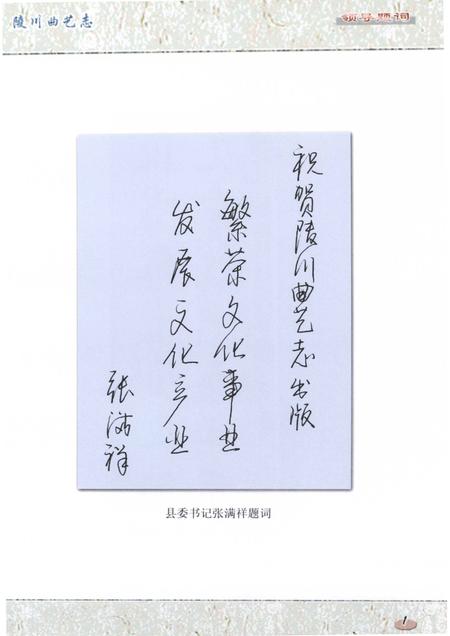 陵川曲艺志
领导题词
祝贺陵川曲艺志出版
繁荣文化事业
发展文化产业
张满祥
县委书记张满祥题词
1